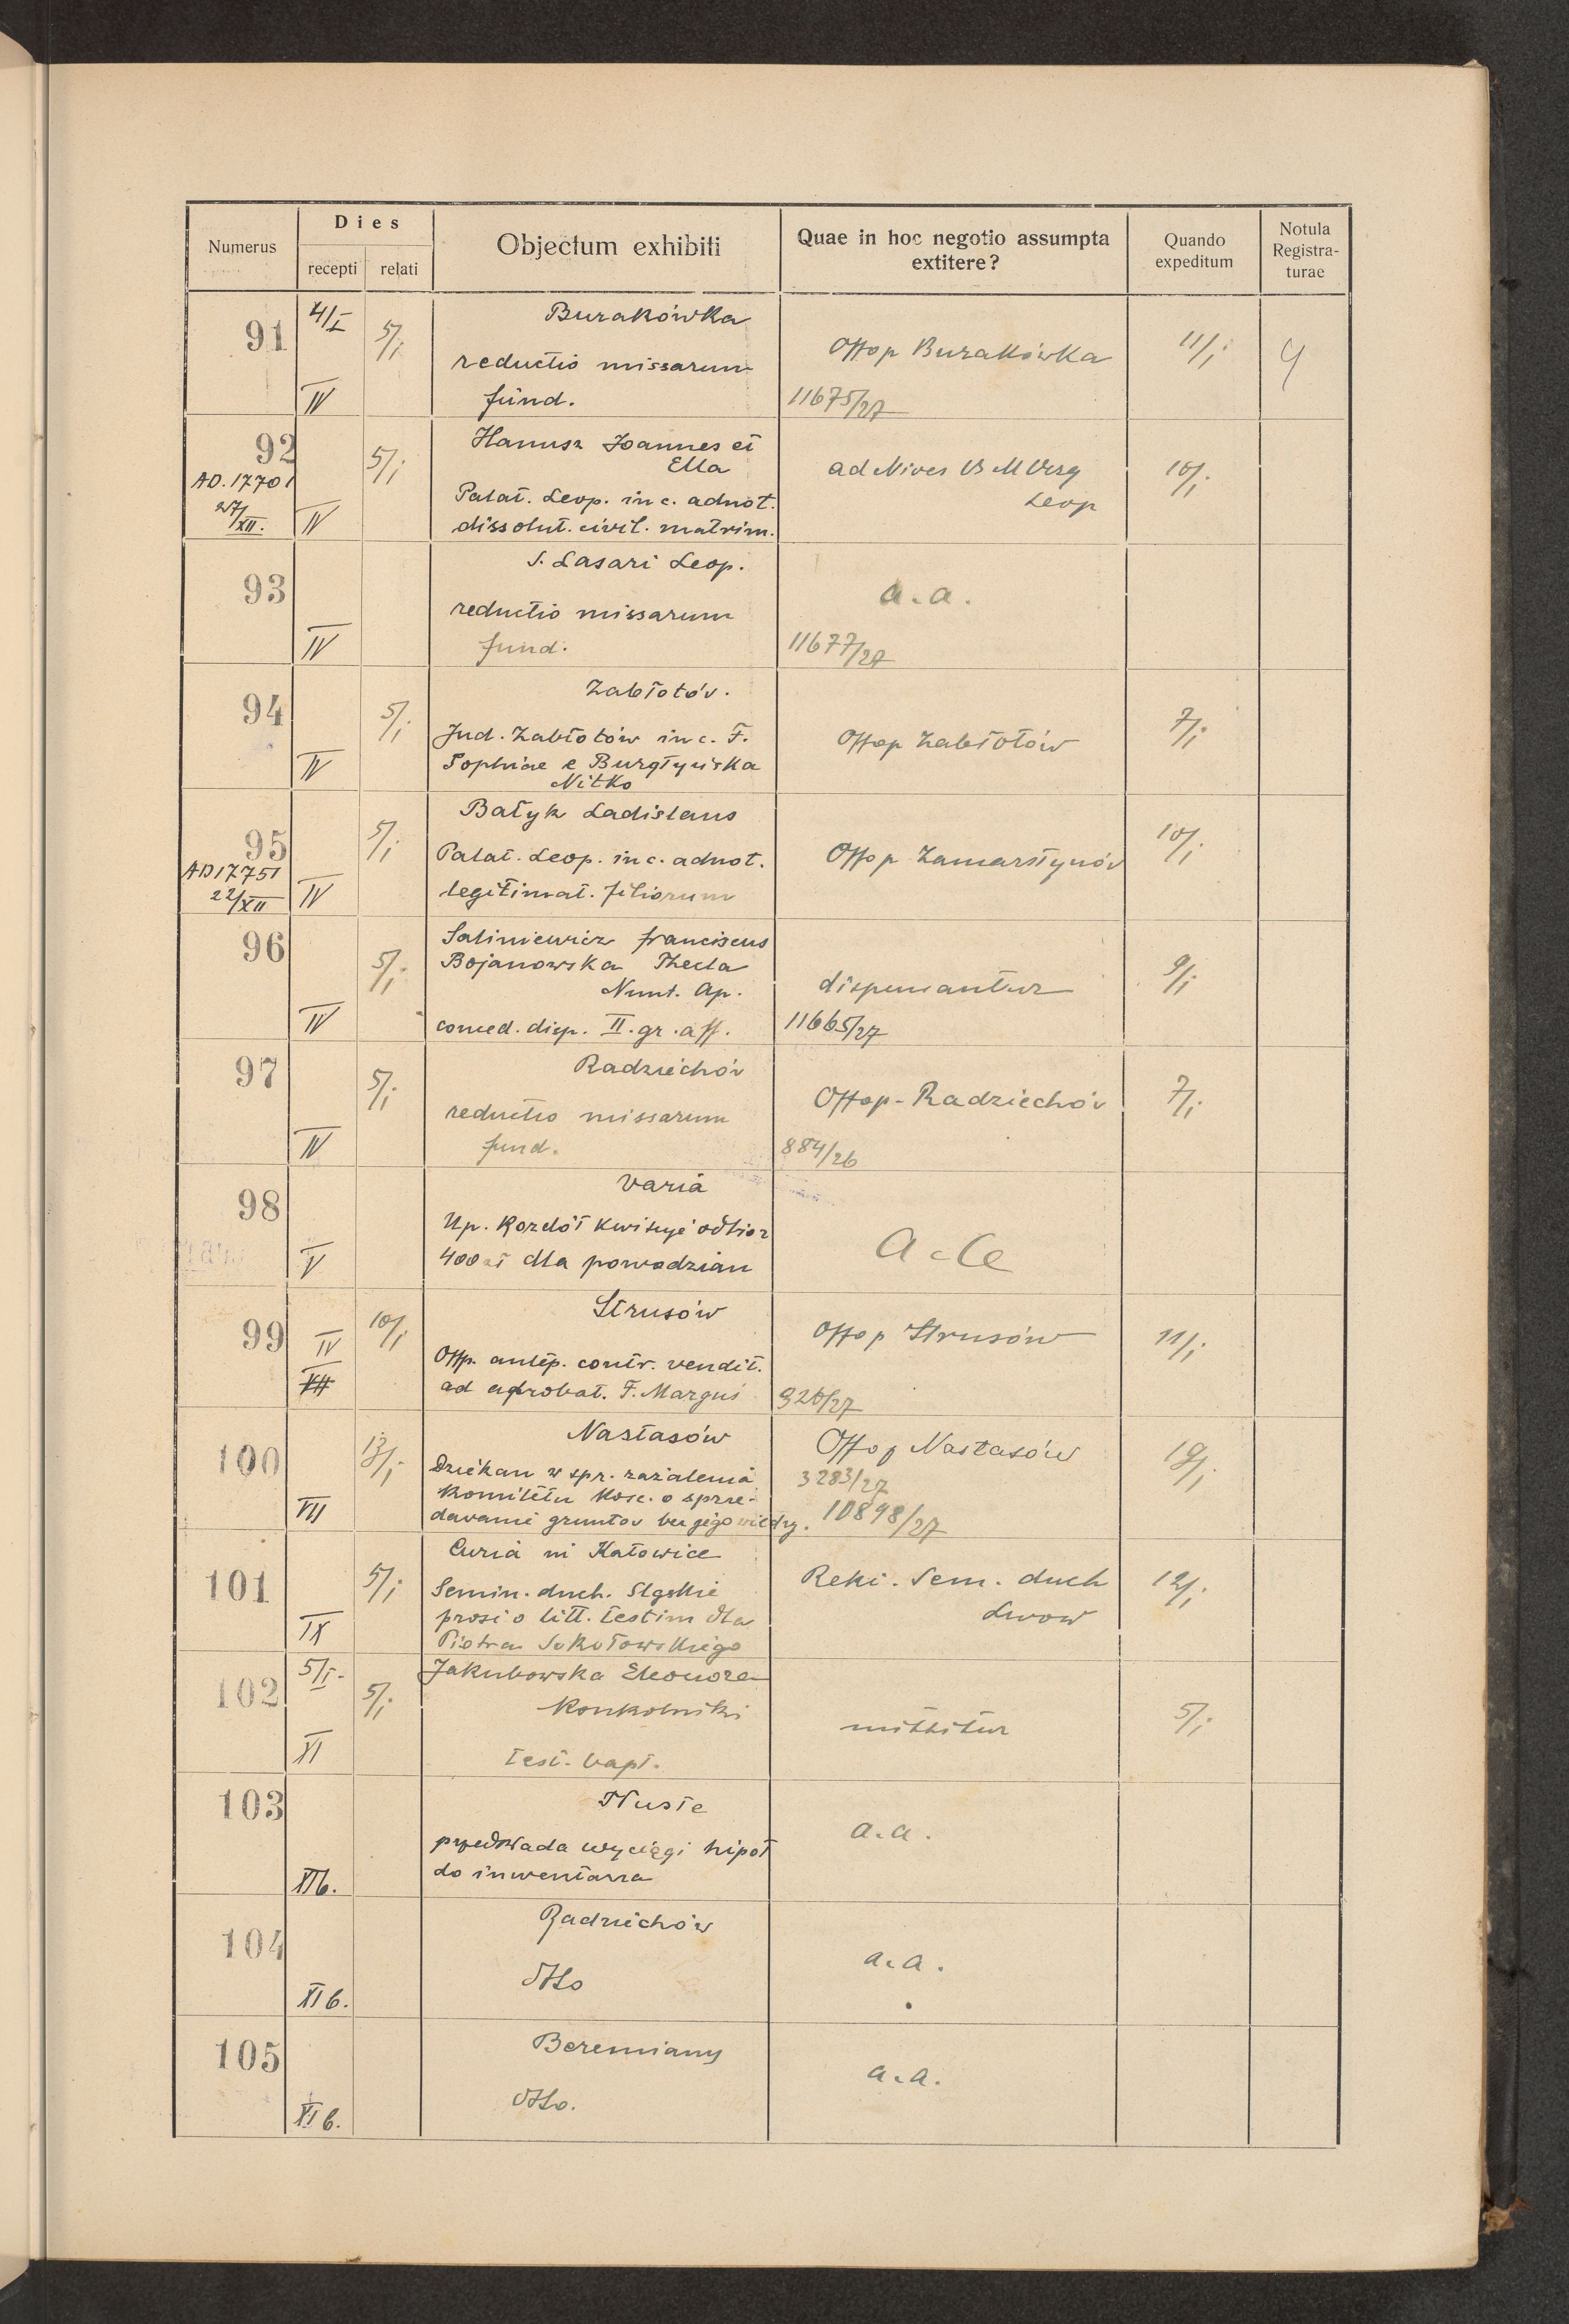 Numerus
Dies
recepti relati
Objectum exhibiti
Quae in hoc negotio assumpta
extitere?
Quando
expeditum
Notula
Registra-
turae
91 4/I 5/i Burakówka
reductio missarum
IV fund.
Offop Burakówka 11/i
11675/27
92 5/i Hanusz Joannes et
Ella
AD. 17701
27/XII. IV Palat. Leop. in c. adnot.
dissolut. civil. matrim.
ad Nives B M Virg 10/i
Leop
93 S. Lasari Leop.
reductio missarum
IV fund.
a.a.
11677/27
94 5/i Zabłotów.
Jud. Zabłotów in c. F.
IV Sophiae e Burgtyńska
Nitko
Offop Zabłotów 7/i
95 5/i Batyk Ladislaus
AD 17751
22/XII IV Palat. Leop. in c. adnot.
legitimat. filiorum
Offop Zamarstynów 10/i
96 5/i Saliniewicz Franciscus
Bojanowska Thecla
Nunt. Ap.
IV comed. disp. II. gr. aff.
dispensantur 9/i
11665/27
97 5/i Radziechów
reductio missarum
IV fund.
Offop-Radziechów 7/i
884/26
98 Varia
Up. Kozdół kwituje odbior
V 400 zł dla powodzian
a.a
99 IV 10/i Strusów
Offp. antep. contr. vendit.
VII ad aprobat. F. Marguś
Offop Strusów 11/i
100 13/i Nastasów
Dziekan w spr. zażalenia
komitetu kość. o sprze-
VII davanie gruntov bez jego wiedzy.
Offop Nastasów
3283/27
10898/27
101 5/i Curia in Katowice
Semin. duch. Slgskie
IX prosi o litt. testim dla
Piotra Sokołowskiego
Rekt. Sem. duch 12/i
Lwow
102 5/I. 5/i Jakubowska Eleonora
Konkolniki
XI test. bapt.
mittitur 5/i
103 Tłuste
przedkłada wyciągi hipot
XIb. do inwentarza
a.a.
104 Radziechów
XI b. dtto
a.a.
105 Beremiany
XI b. dtto.
a.a.